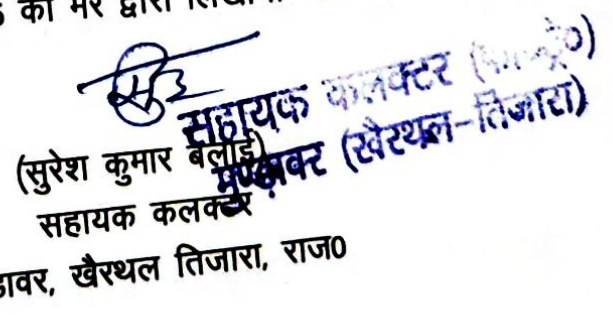 को मेरे द्वारा
सहायक कलक्टर
मुण्डावर (खैरथल-तिजारा)
(सुरेश कुमार बलाई)
सहायक कलक्टर
डावर, खैरथल तिजारा, राज0